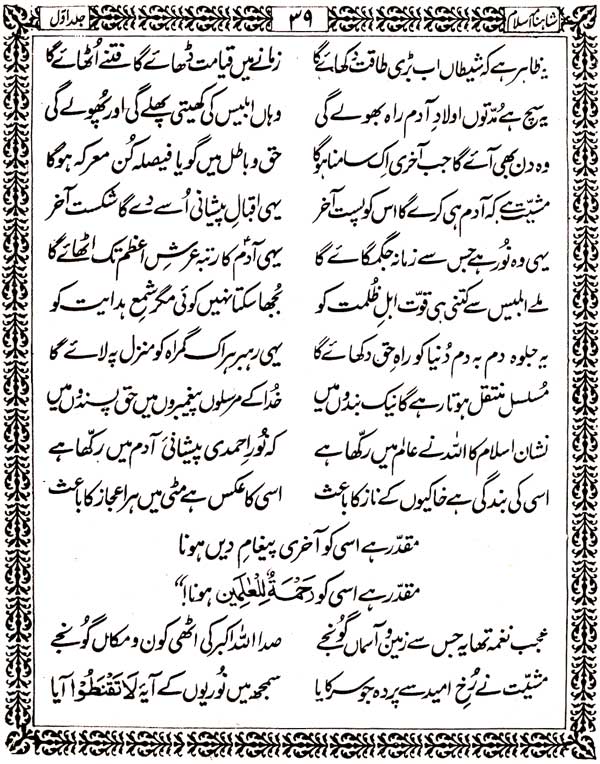 شاہنامہ اسلام ۳۹ جلد اوّل
یہ ظاہر ہے کہ شیطاں اب بڑی طاقت دکھائے گا زمانے میں قیامت ڈھائے گا فتنے اُٹھائے گا
یہ سچ ہے مُدّتوں اولادِ آدم راہ بھولے گی وہاں ابلیس کی کھیتی پھلے گی اور پُھولے گی
وہ دن بھی آئے گا جب آخری اِک سامنا ہوگا حق و باطل میں گویا فیصلہ کُن معرکہ ہوگا
مشیّت ہے کہ آدم ہی کرے گا اس کو پست آخر یہی اقبالِ پیشانی اُسے دے گا شکست آخر
یہی وہ نُور ہے جس سے زمانہ جگمگائے گا یہی آدمؑ کا رتبہ عرشِ اعظم تک اٹھائے گا
ملے ابلیس سے کتنی ہی قوّت اہلِ ظُلمت کو بُجھا سکتا نہیں کوئی مگر شمعِ ہدایت کو
یہ جلوہ دم بہ دم دُنیا کو راہِ حق دکھائے گا یہی رہبر ہر اک گمراہ کو منزل پہ لائے گا
مُسلسل منتقل ہوتا رہے گا نیک بندوں میں خُدا کے مرسلوں پیغمبروں میں حق پسندوں میں
نشان اسلام کا اللہ نے عالم میں رکھا ہے کہ نُورِ احمدی پیشانیٔ آدم میں رکھا ہے
اسی کی بندگی ہے خاکیوں کے ناز کا باعث اسی کا عکس ہے مٹی میں ہر اعجاز کا باعث
مقدّر ہے اسی کو آخری پیغامِ دیں ہونا
مقدّر ہے اسی کو رَحْمَةٌ لِّلْعٰلَمِیْن ہونا!“
عجب نغمہ تھا یہ جس سے زمین و آسماں گونجے صدا اللہ اکبر کی اٹھی کون و مکاں گونجے
مشیّت نے رُخِ امید سے پردہ جو سرکایا سمجھ میں نُوریوں کے آیۂ لَا تَقْنَطُوْا آیا